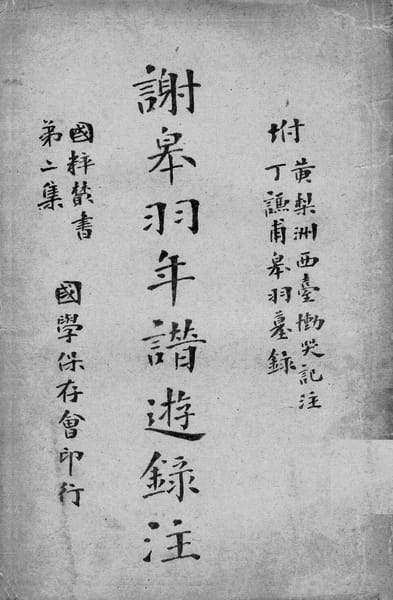 坿
黃梨洲西臺慟哭記注
丁謙甫臯羽墓錄
謝臯羽年譜遊錄注
國粹叢書
第二集
國學保存會印行